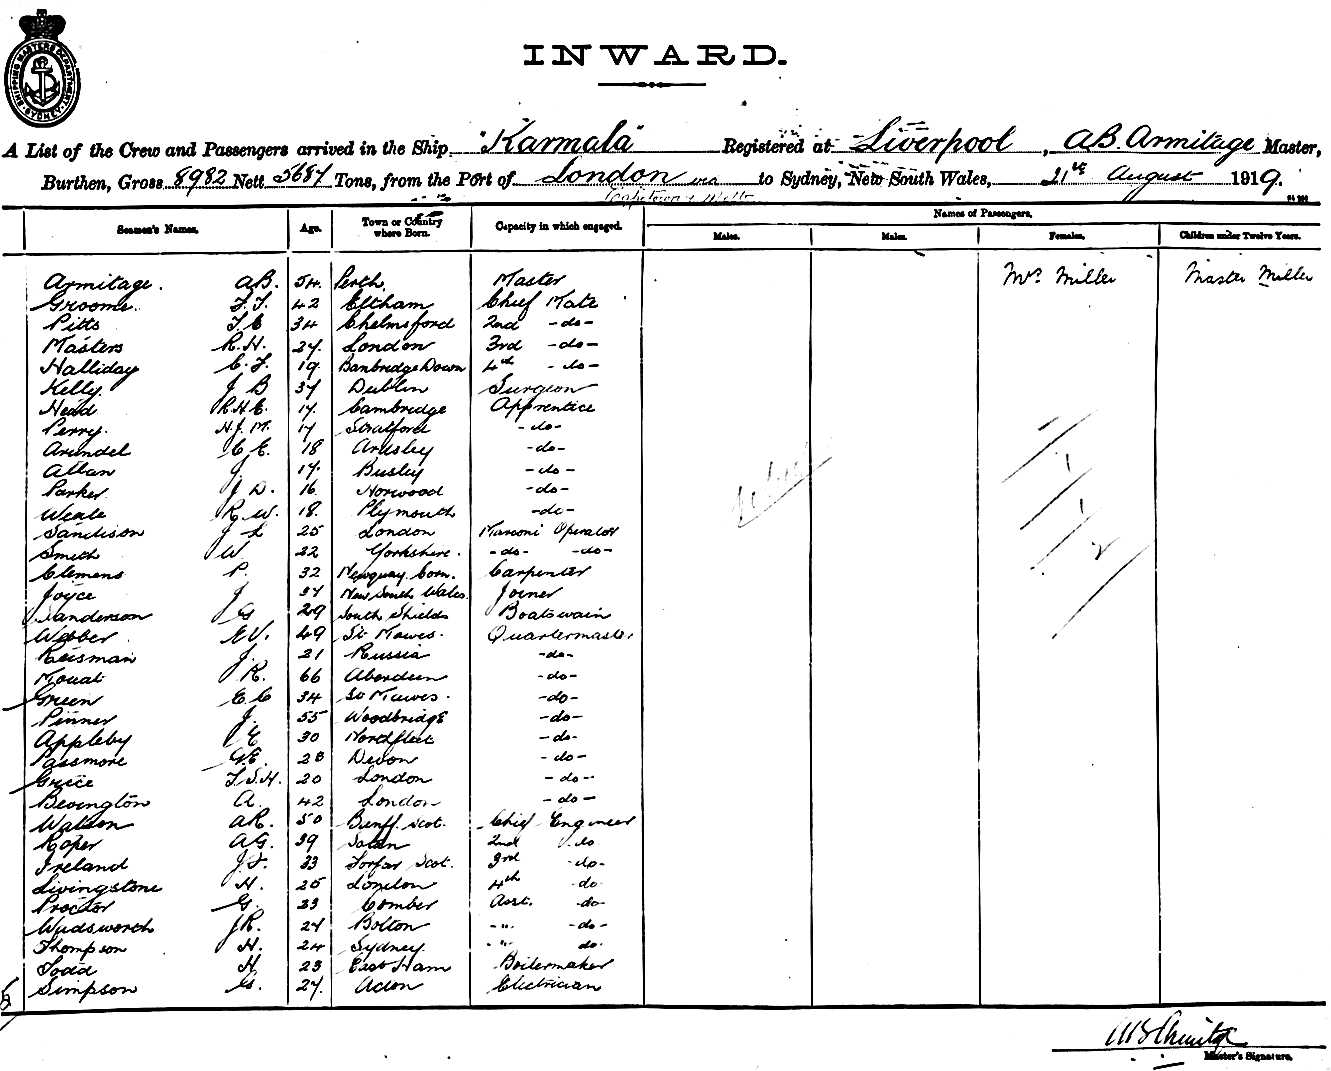 SHIPPING MASTERS DEPARTMENT SYDNEY
INWARD.
A List of the Crew and Passengers arrived in the Ship "Karmala" Registered at Liverpool, AB. Armitage Master,
Burthen, Gross 8982 Nett Tons, from the Port of London via to Sydney, New South Wales, 21st August 1919.
Capetown & Melb
Names of Passengers.
Seamen's Names. Age. Town or Country where Born. Capacity in which engaged. Males. Males. Females. Children under Twelve Years.
Armitage. AB. 54. Perth. Master Mrs Miller Master Miller
Groome. 42 Eltham Chief Mate
Pitts 34 Chelmsford 2nd -do-
Masters R.H. 27. London 3rd -do-
Halliday C.F. 19. Banbridge Down 4th -do-
Kelly. J B 37 Dublin Surgeon
Head R H C. 17. Cambridge Apprentice
Perry. H.J.M. 17 Stratford -do-
Arundel C E. 18 Ardsley -do-
Allan J. 17. Busley -do-
Parker J D. 16 Norwood -do-
Weale R.W. 18. Plymouth -do-
Sandison J L 25 London Marconi Operator
Smith W. 22 Yorkshire. -do- -do-
Clemens P. 32 Newquay Corn. Carpenter
Joyce J. 37 New South Wales. Joiner
Sanderson G 29 South Shields Boatswain
Webber 49 St Mawes. Quartermaster
Reisman J. 21 Russia -do-
Mouat R. 66 Aberdeen -do-
Green E C 34 St Mawes. -do-
Pinner J. 55 Woodbridge -do-
Appleby E 30 Northfleet -do-
Passmore G.E. 28 Devon -do-
Grice 20 London -do-
Bevington A. 42 London -do-
Watson AR. 50 Banff. Scot. Chief Engineer
Roper AG. 39 2nd do
Ireland J.F. 33 Forfar Scot. 3rd -do-
Livingstone H. 25 London 4th do
Proctor G. 23 Comber Asst. -do-
Wadsworth J.R. 24 Bolton -"- -do-
Thompson H. 24 Sydney. -" do.
Todd H 23 East Ham Boilermaker
Simpson G. 27. Acton Electrician
AB Armitage
Master's Signature.